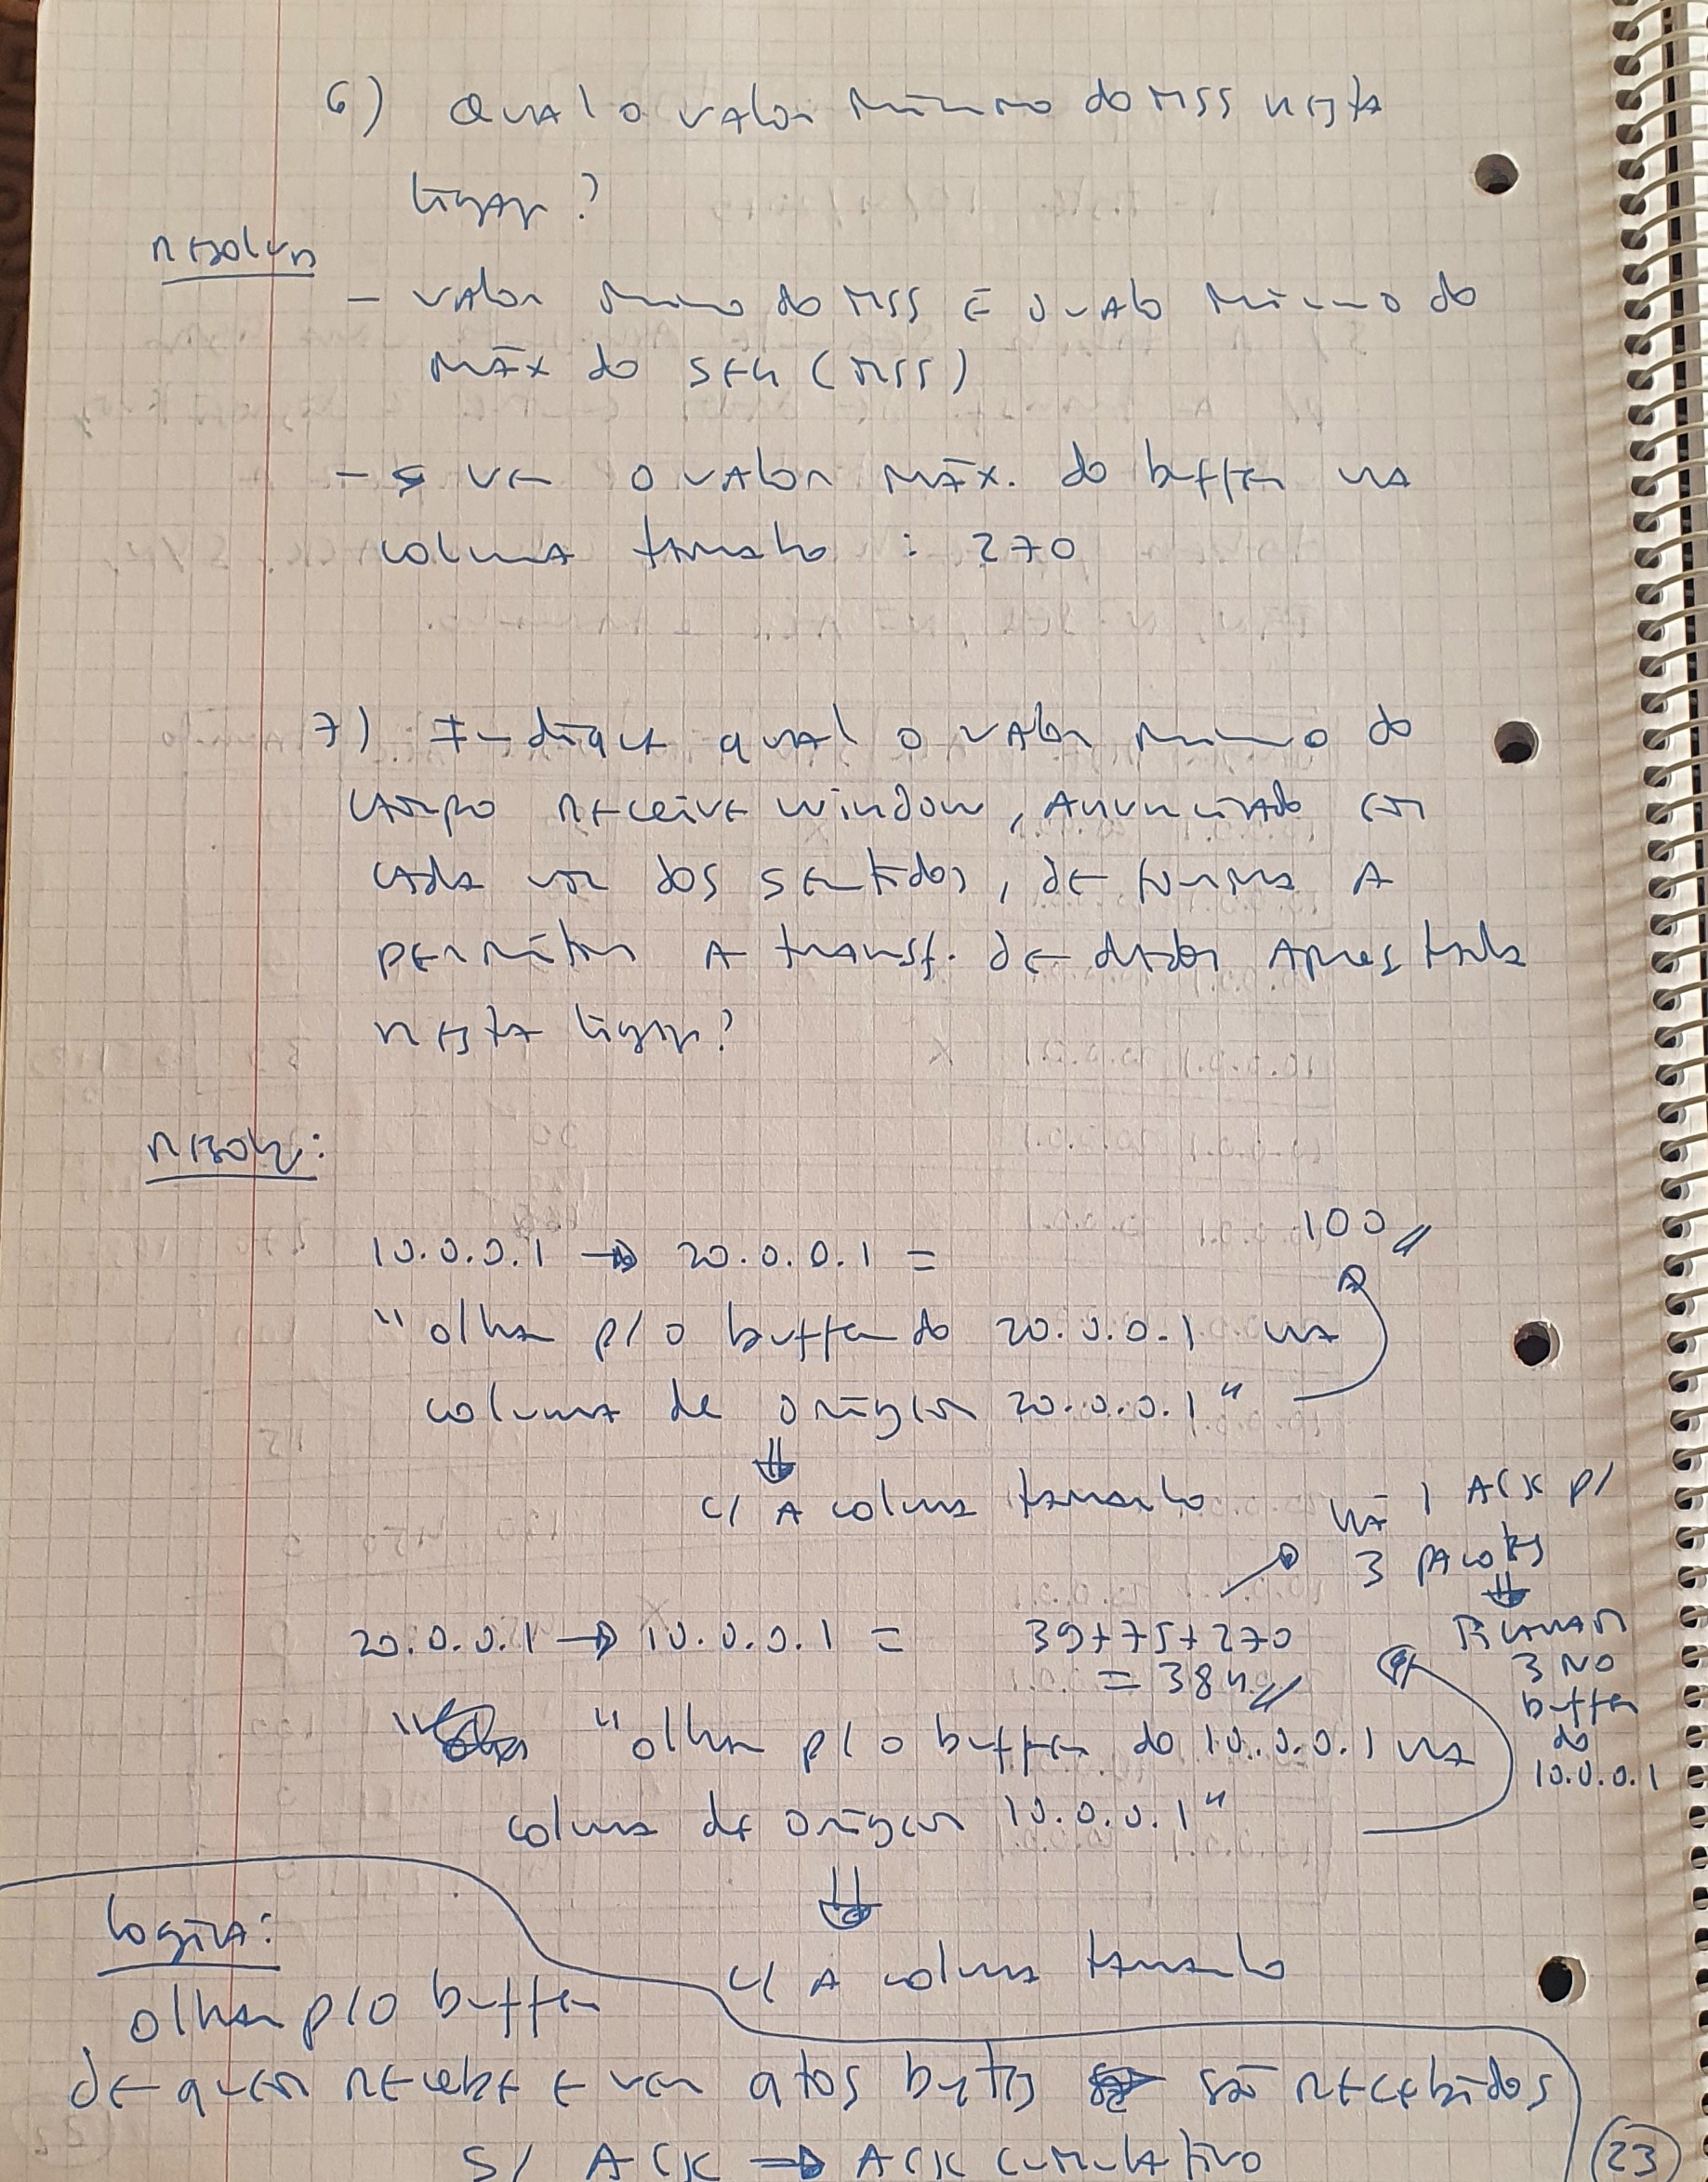 6) Qual o valor mínimo do MSS nesta
ligaç?
resoluç
- valor mínimo do MSS é o valo mínimo do
máx do seg (MSS)
- s ve o valor máx. do buffer na
coluna tamanho : 270
7) Indique qual o valor mínimo do
campo receive window, anunciado em
cada um dos sentidos, de forma a
permitir a transf. de dados apresentada
nesta ligaç?
resoluç:
10.0.0.1 → 20.0.0.1 = 100
"olhar p/ o buffer do 20.0.0.1 na
coluna de origem 20.0.0.1"
⇓
c/ a coluna tamanho
há 1 ACK p/
3 pacotes
⇓
ficaram
3 no
buffer
do
10.0.0.1
20.0.0.1 → 10.0.0.1 = 39+75+270
= 384
" "olhar p/ o buffer do 10.0.0.1 na
coluna de origem 10.0.0.1"
⇓
c/ a coluna tamanho
logica:
olhar p/ o buffer
de quem recebe e ver qtos bytes são recebidos
s/ ACK → ACK cumulativo
23